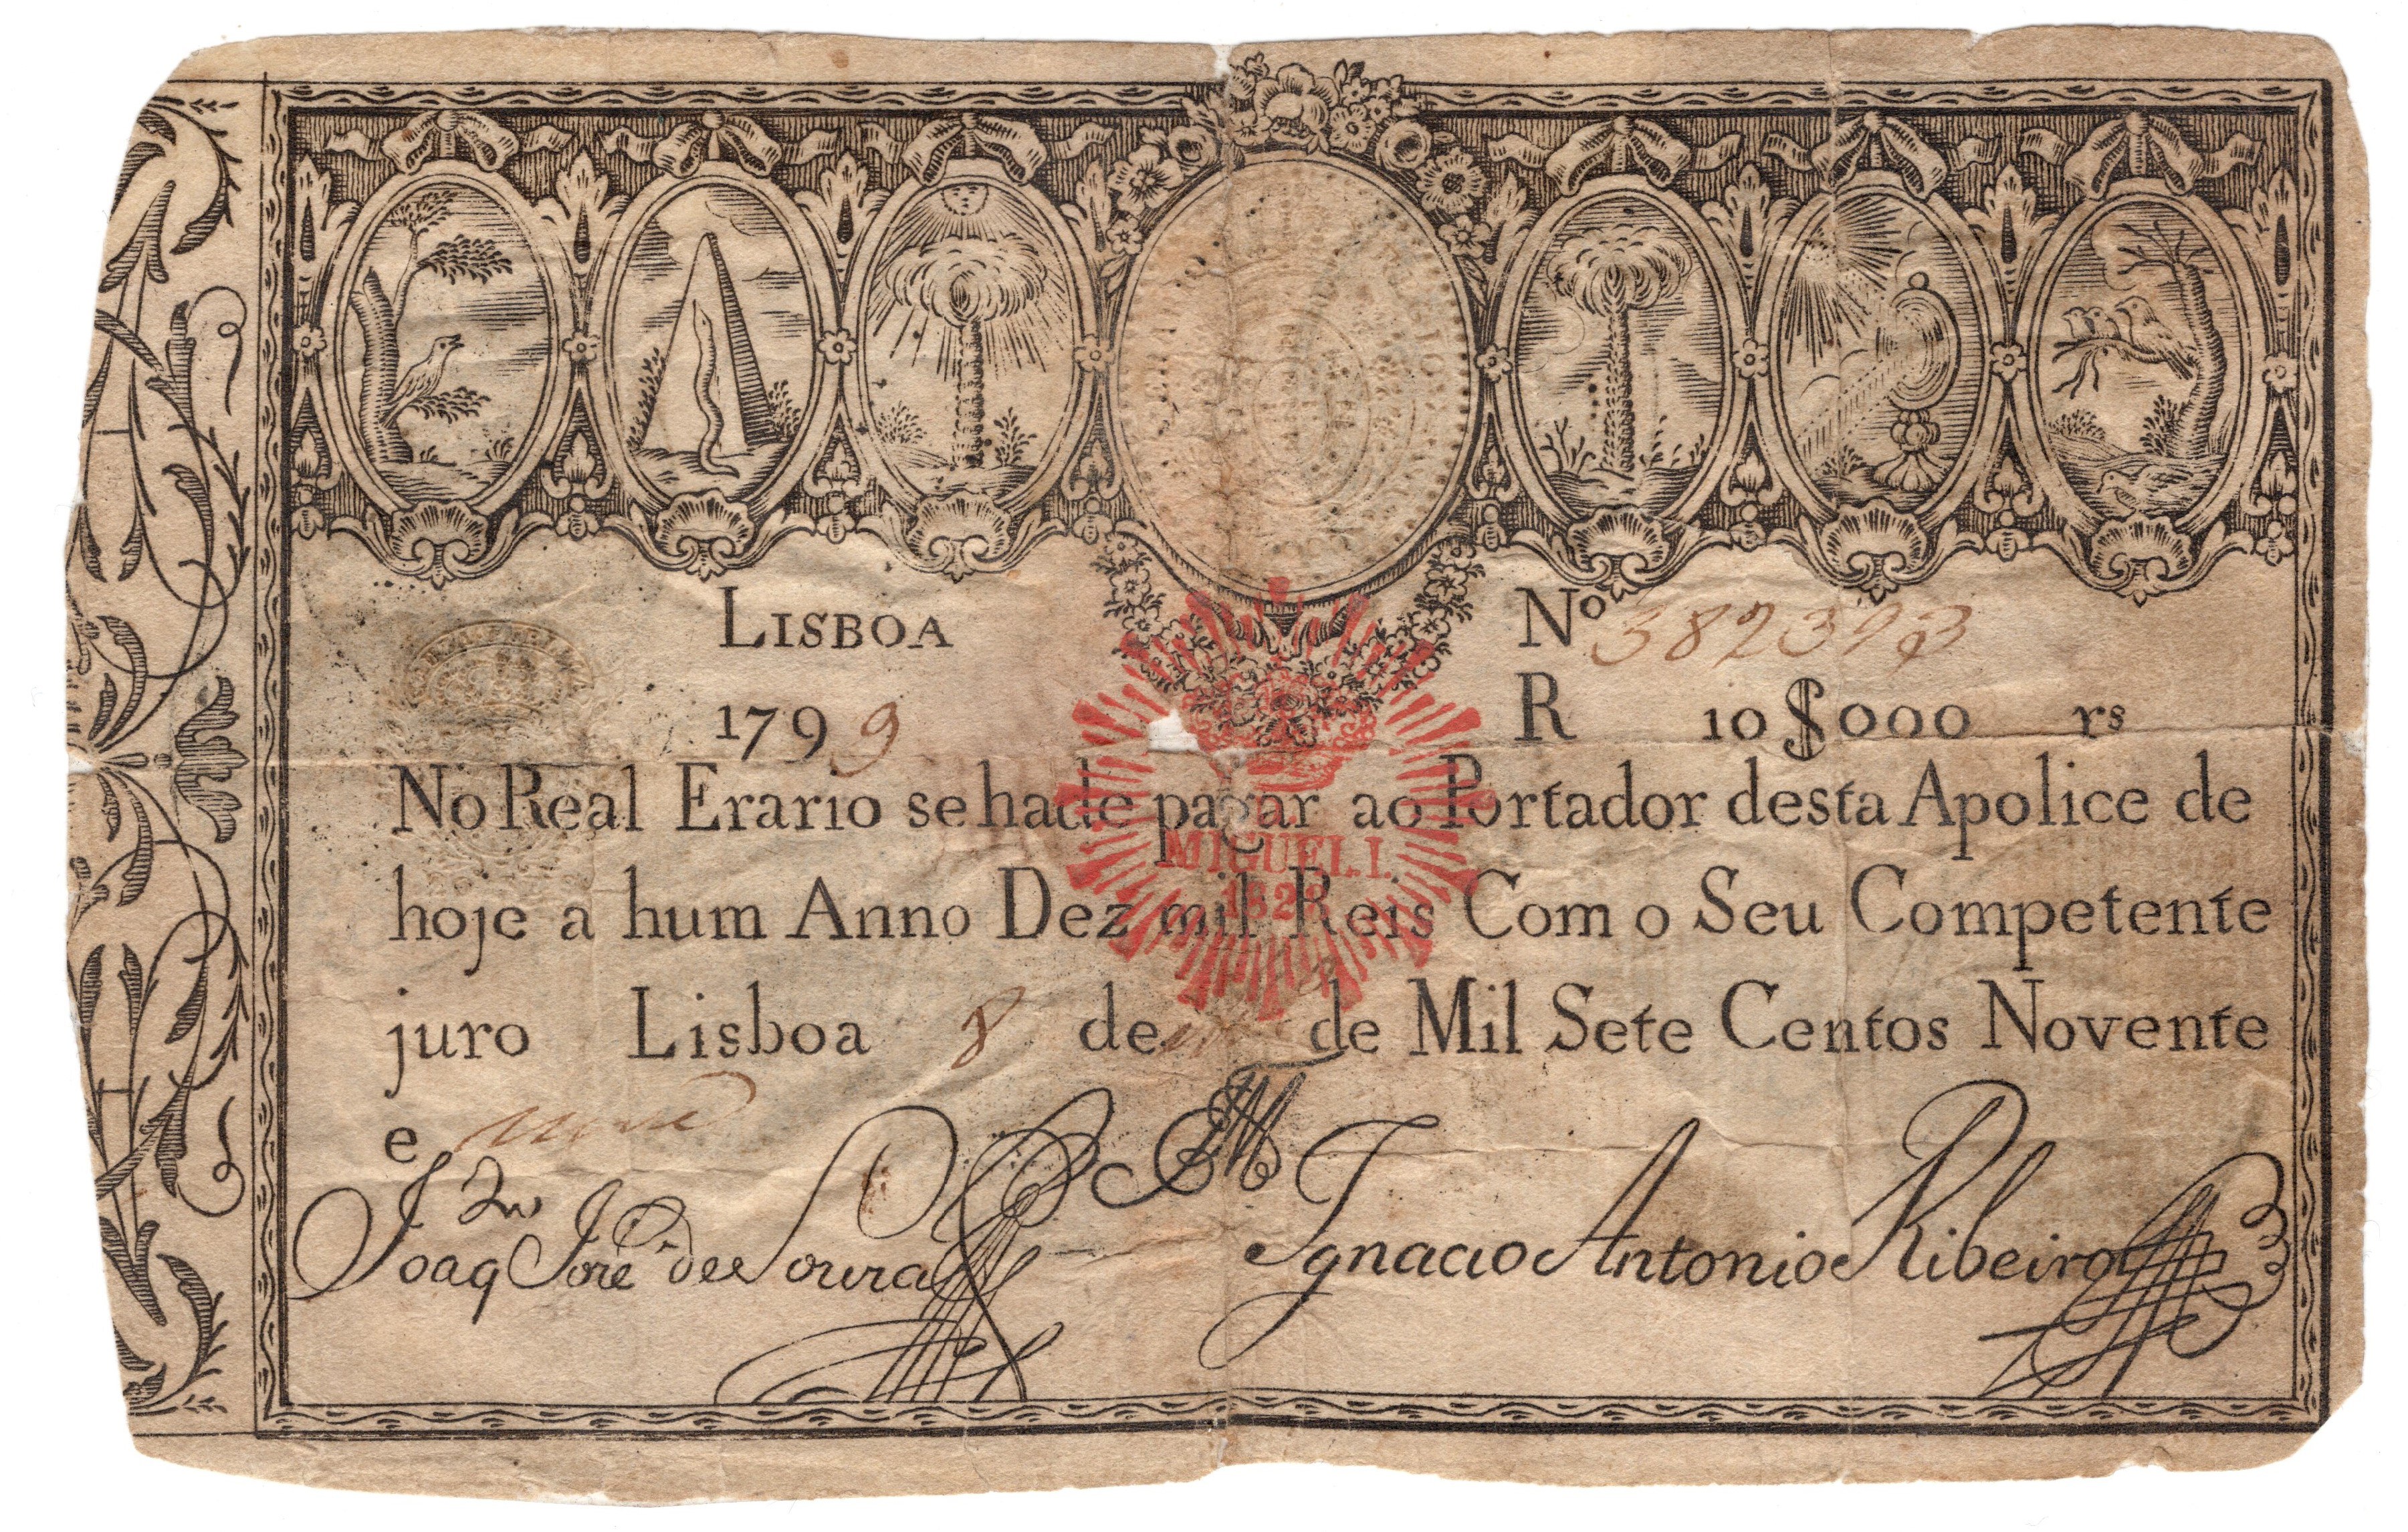 LISBOA
Nº 382393
1799
R 10$000 rs
No Real Erario se hade pagar ao Portador desta Apolice de
MIGUEL. I.
1828
hoje a hum Anno Dez mil Reis Com o Seu Competente
juro Lisboa 8 de de Mil Sete Centos Novente
e nove
Joaqzm Jose de Souza
Ignacio Antonio Ribeiro